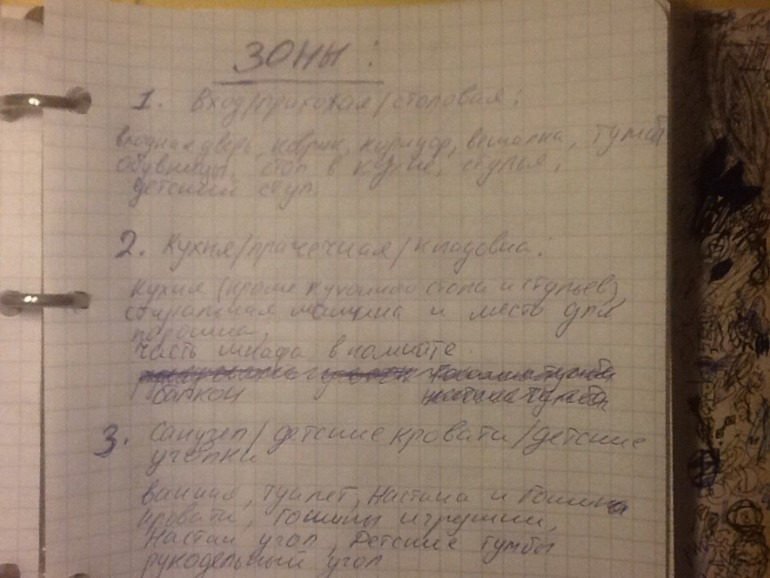 ЗОНЫ:
1. Вход/прихожая/столовая:
входная дверь, коврик, коридор, вешалка, тумба
обувницы, стол в кухне, стулья,
детский стул.
2. Кухня/прачечная/кладовка:
Кухня (кроме кухонного стола и стульев),
стиральная машина и место для
порошка,
часть шкафа в комнате
балкон
3. Санузел/детские кровати/детские
уголки
ванная, туалет, Настина и Гошина
кровати, Гошины игрушки,
Настин угол, Детские тумбы
рукодельный угол